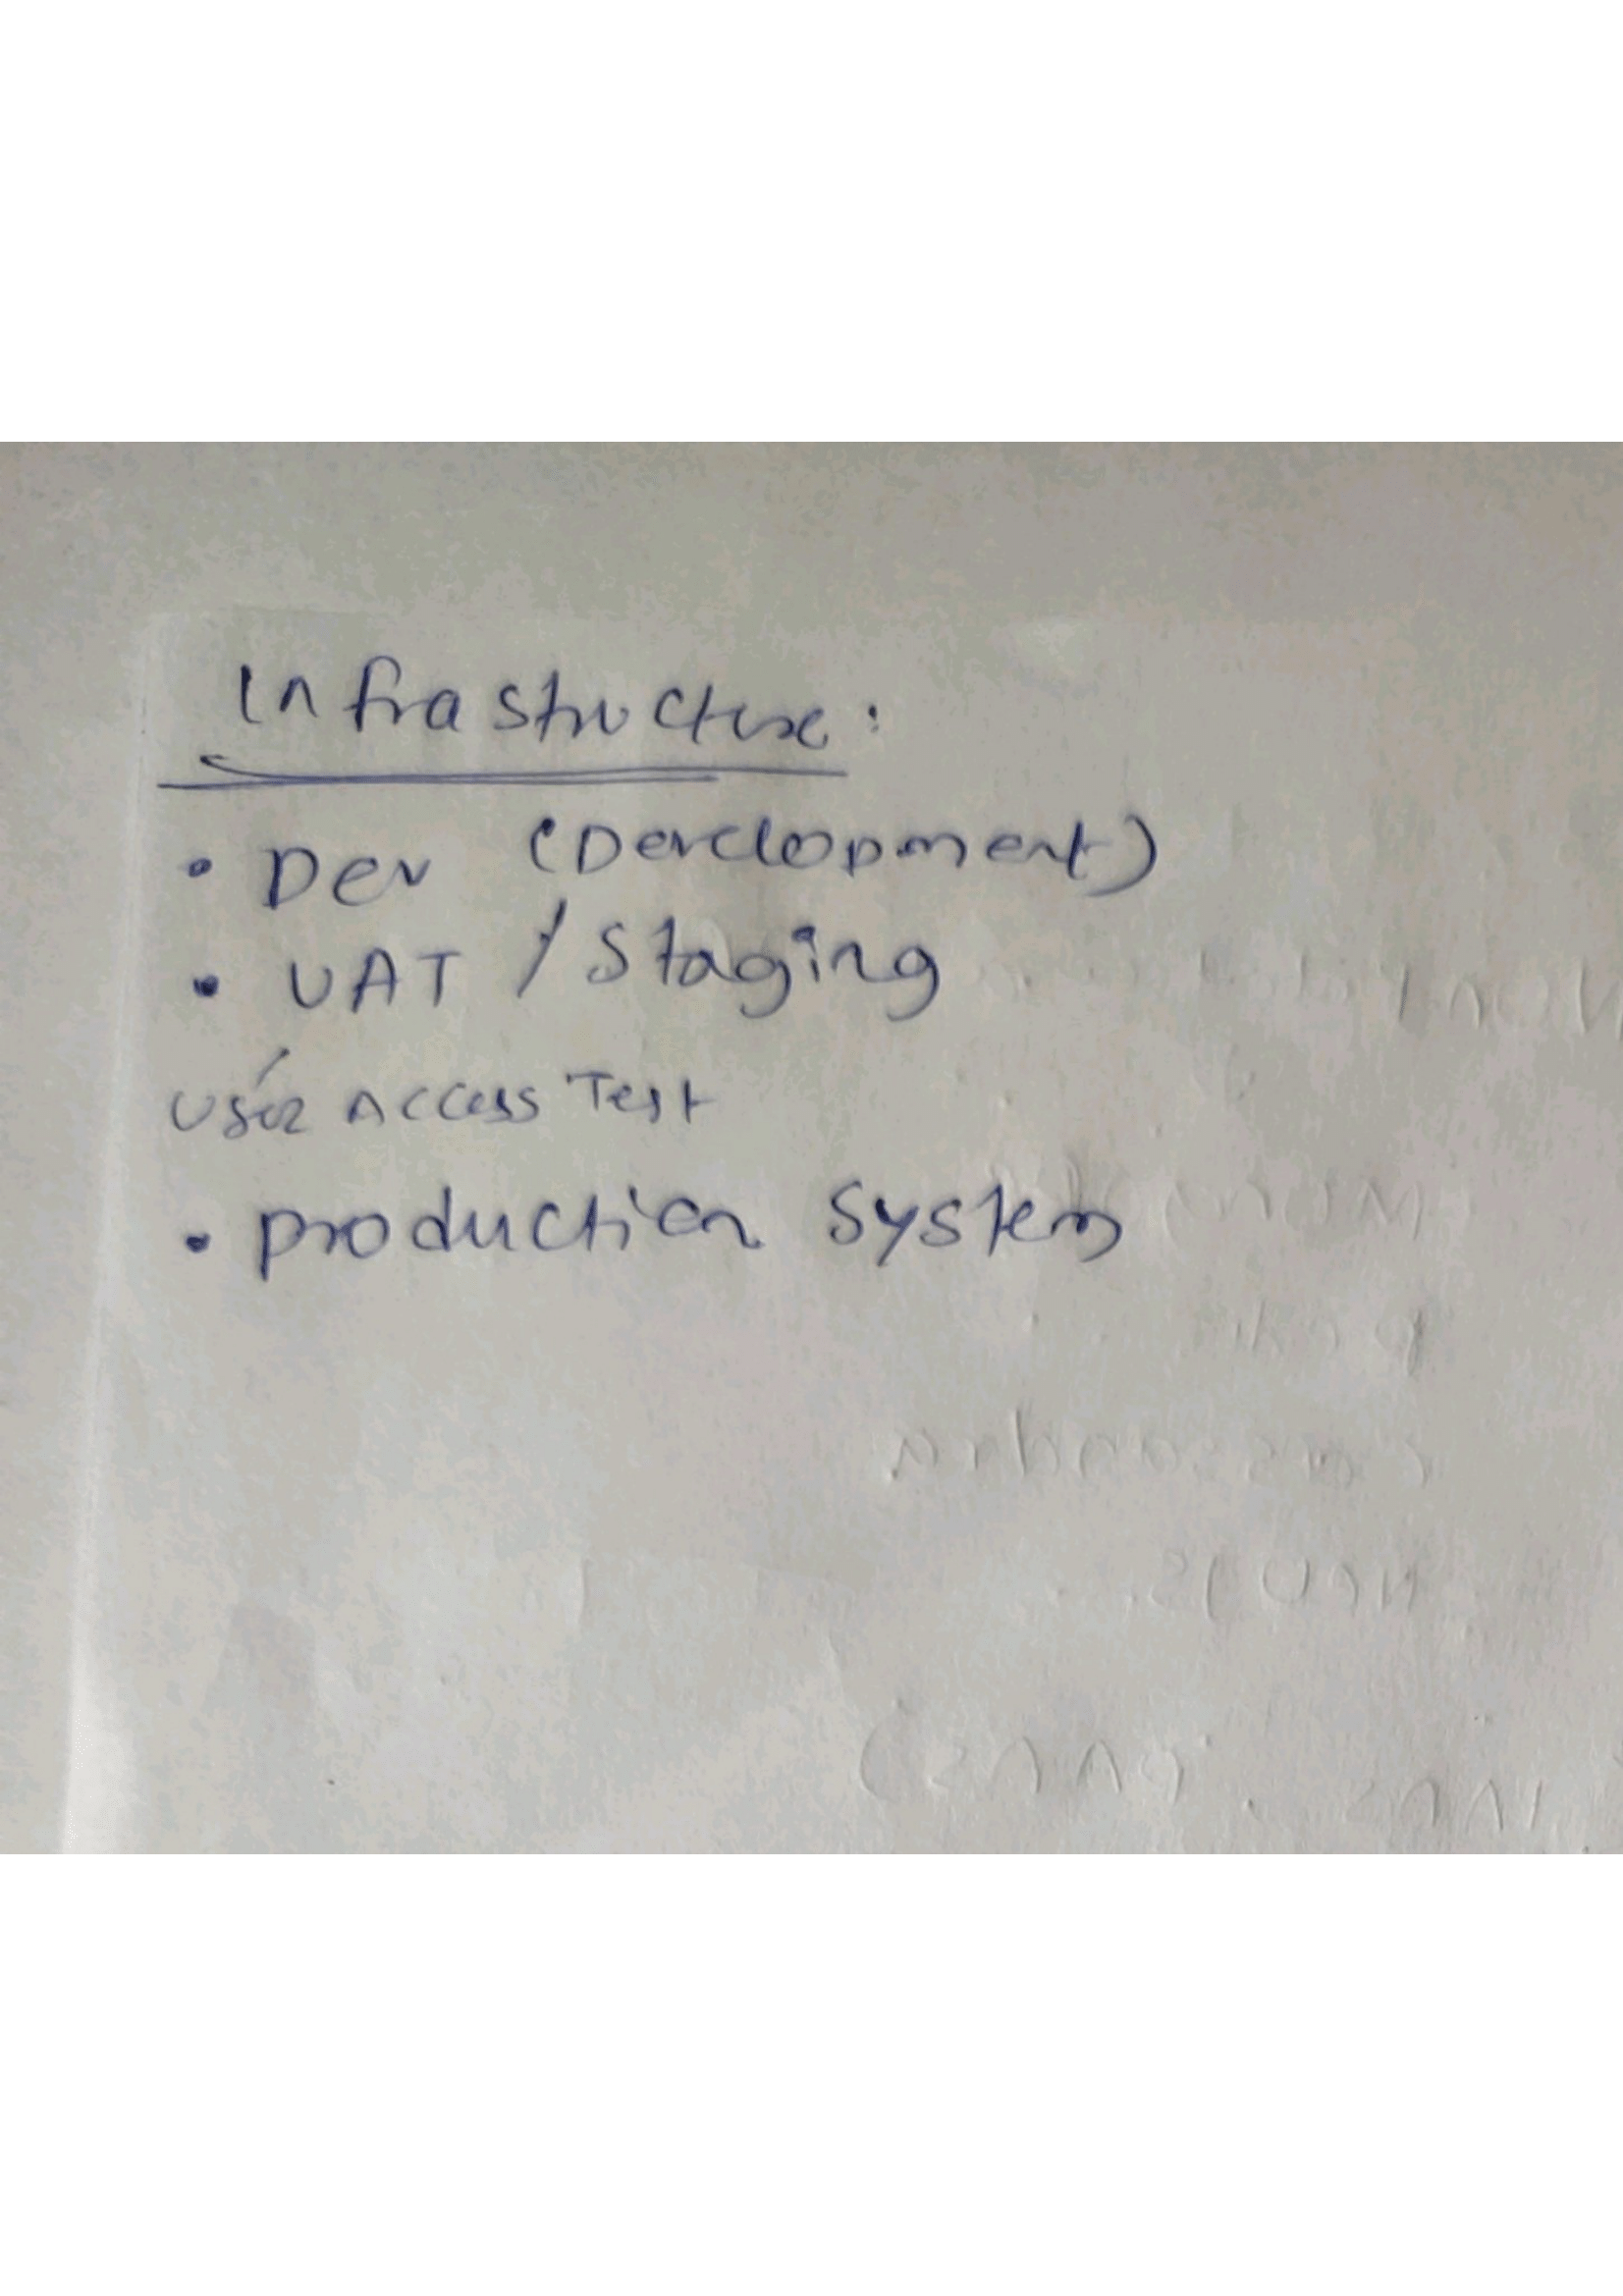 Infrastructure:
• Dev (Development)
• UAT / Staging
User Access Test
• production System